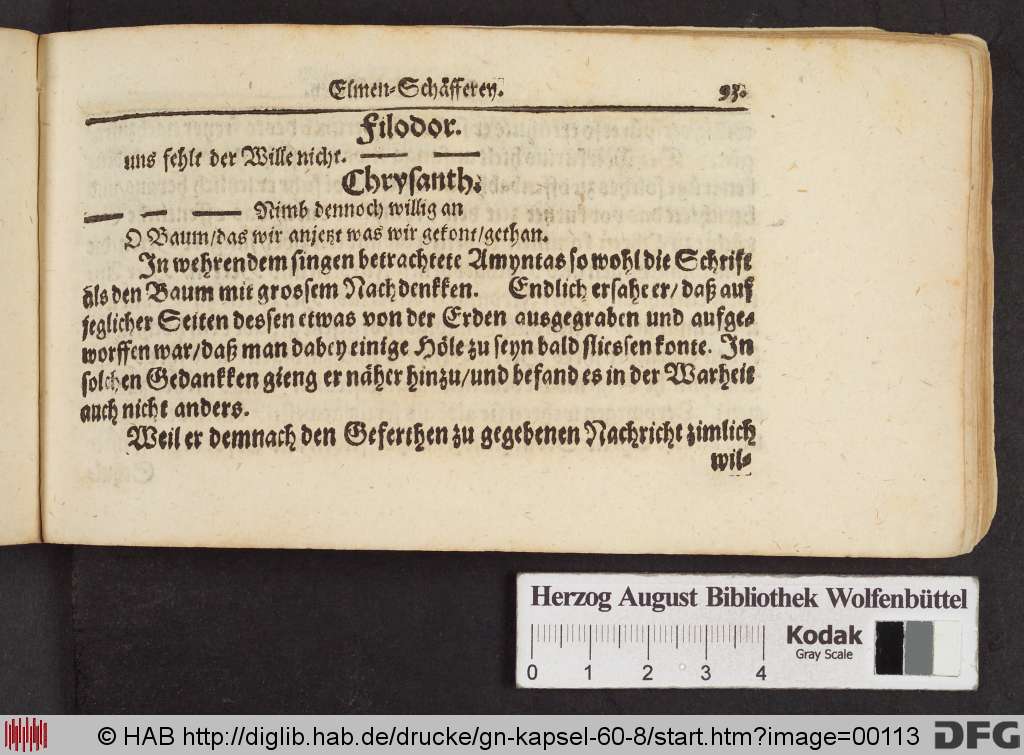 Elmen-Schäfferey. 93.
Filodor.
uns fehlt der Wille nicht. — —
Chrysanth.
— — — Nimb dennoch willig an
O Baum/das wir anjetzt was wir gekont/gethan.
In wehrendem singen betrachtete Amyntas so wohl die Schrift
als den Baum mit grossem Nachdenkken. Endlich ersahe er/ daß auf
jeglicher Seiten dessen etwas von der Erden ausgegraben und aufge-
worffen war/daß man dabey einige Höle zu seyn bald sliessen konte. In
solchen Gedankken gieng er näher hinzu/und befand es in der Warheit
auch nicht anders.
Weil er demnach den Geferthen zu gegebenen Nachricht zimlich
wil-
Herzog August Bibliothek Wolfenbüttel
Kodak
Gray Scale
0 1 2 3 4
© HAB http://diglib.hab.de/drucke/gn-kapsel-60-8/start.htm?image=00113
DFG